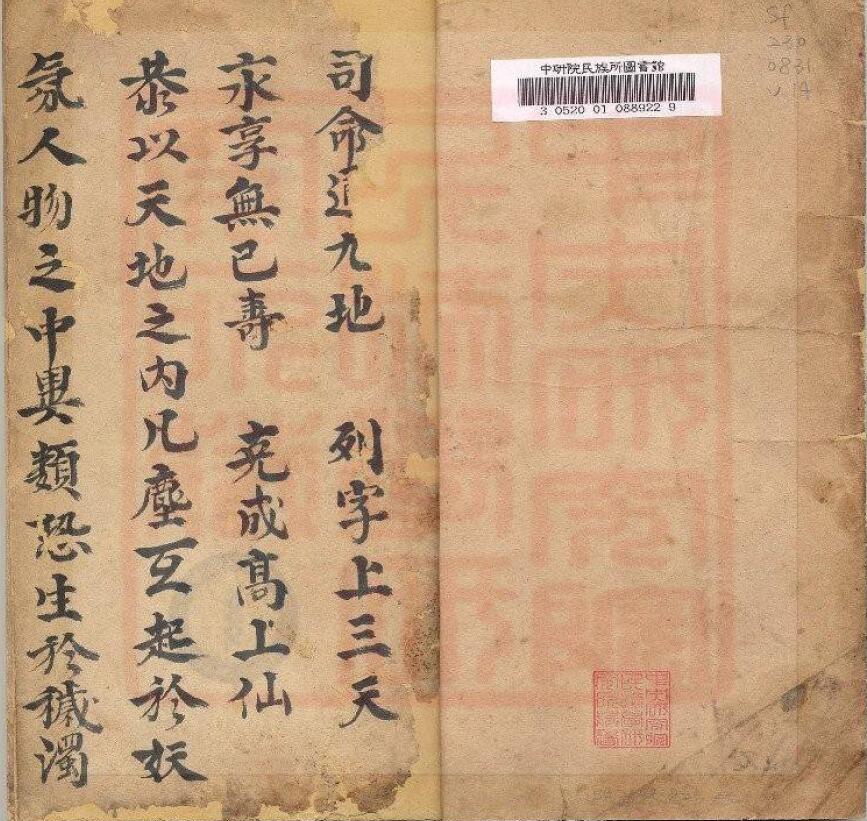 Sf
230
0831
中研院民族所圖書館
3 0520 01 088922 9
司命九地　列字上三天
永享無已壽　克成高上仙
恭以天地之内凡塵互起於妖
氛人物之中異類恐生於穢濁